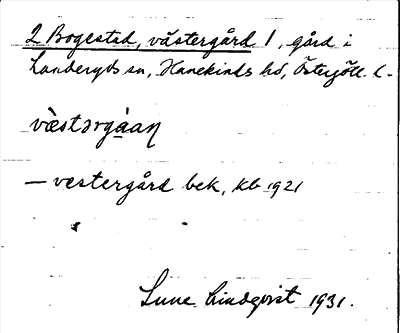 2 Bogestad, västergård 1, gård i
Landeryds sn, Hanekinds hd, Östergötl. l.
vàstərgáaɳ
— vestergård bek, kb 1921
Sune Lindqvist 1931.